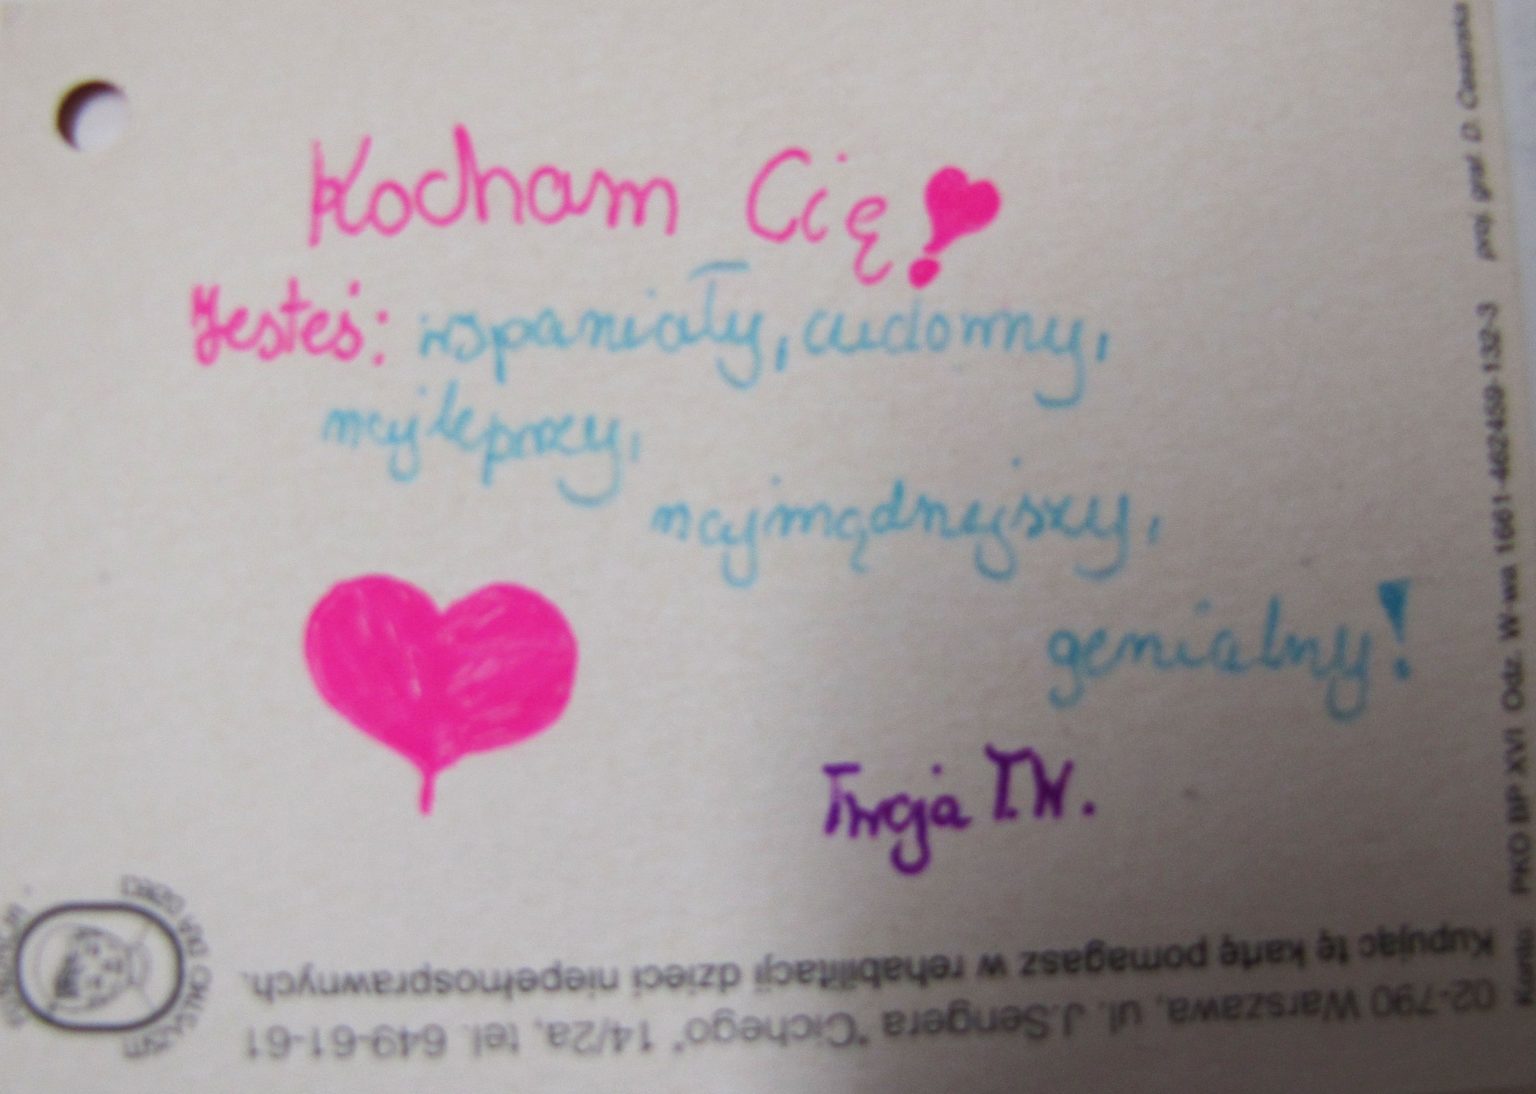 Kocham Cię!
Jesteś: wspaniały, cudowny,
najleprzy,
najmądrzejszy,
genialny!
Twoja T.W.
Kupując tę kartę pomagasz w rehabilitacji dzieci niepełnosprawnych.
02-790 Warszawa, ul. J.Sengera "Cichego" 14/2a, tel. 649-61-61
PKO BP XVI Odz. W-wa 1661-462459-132-3 proj. graf. D.